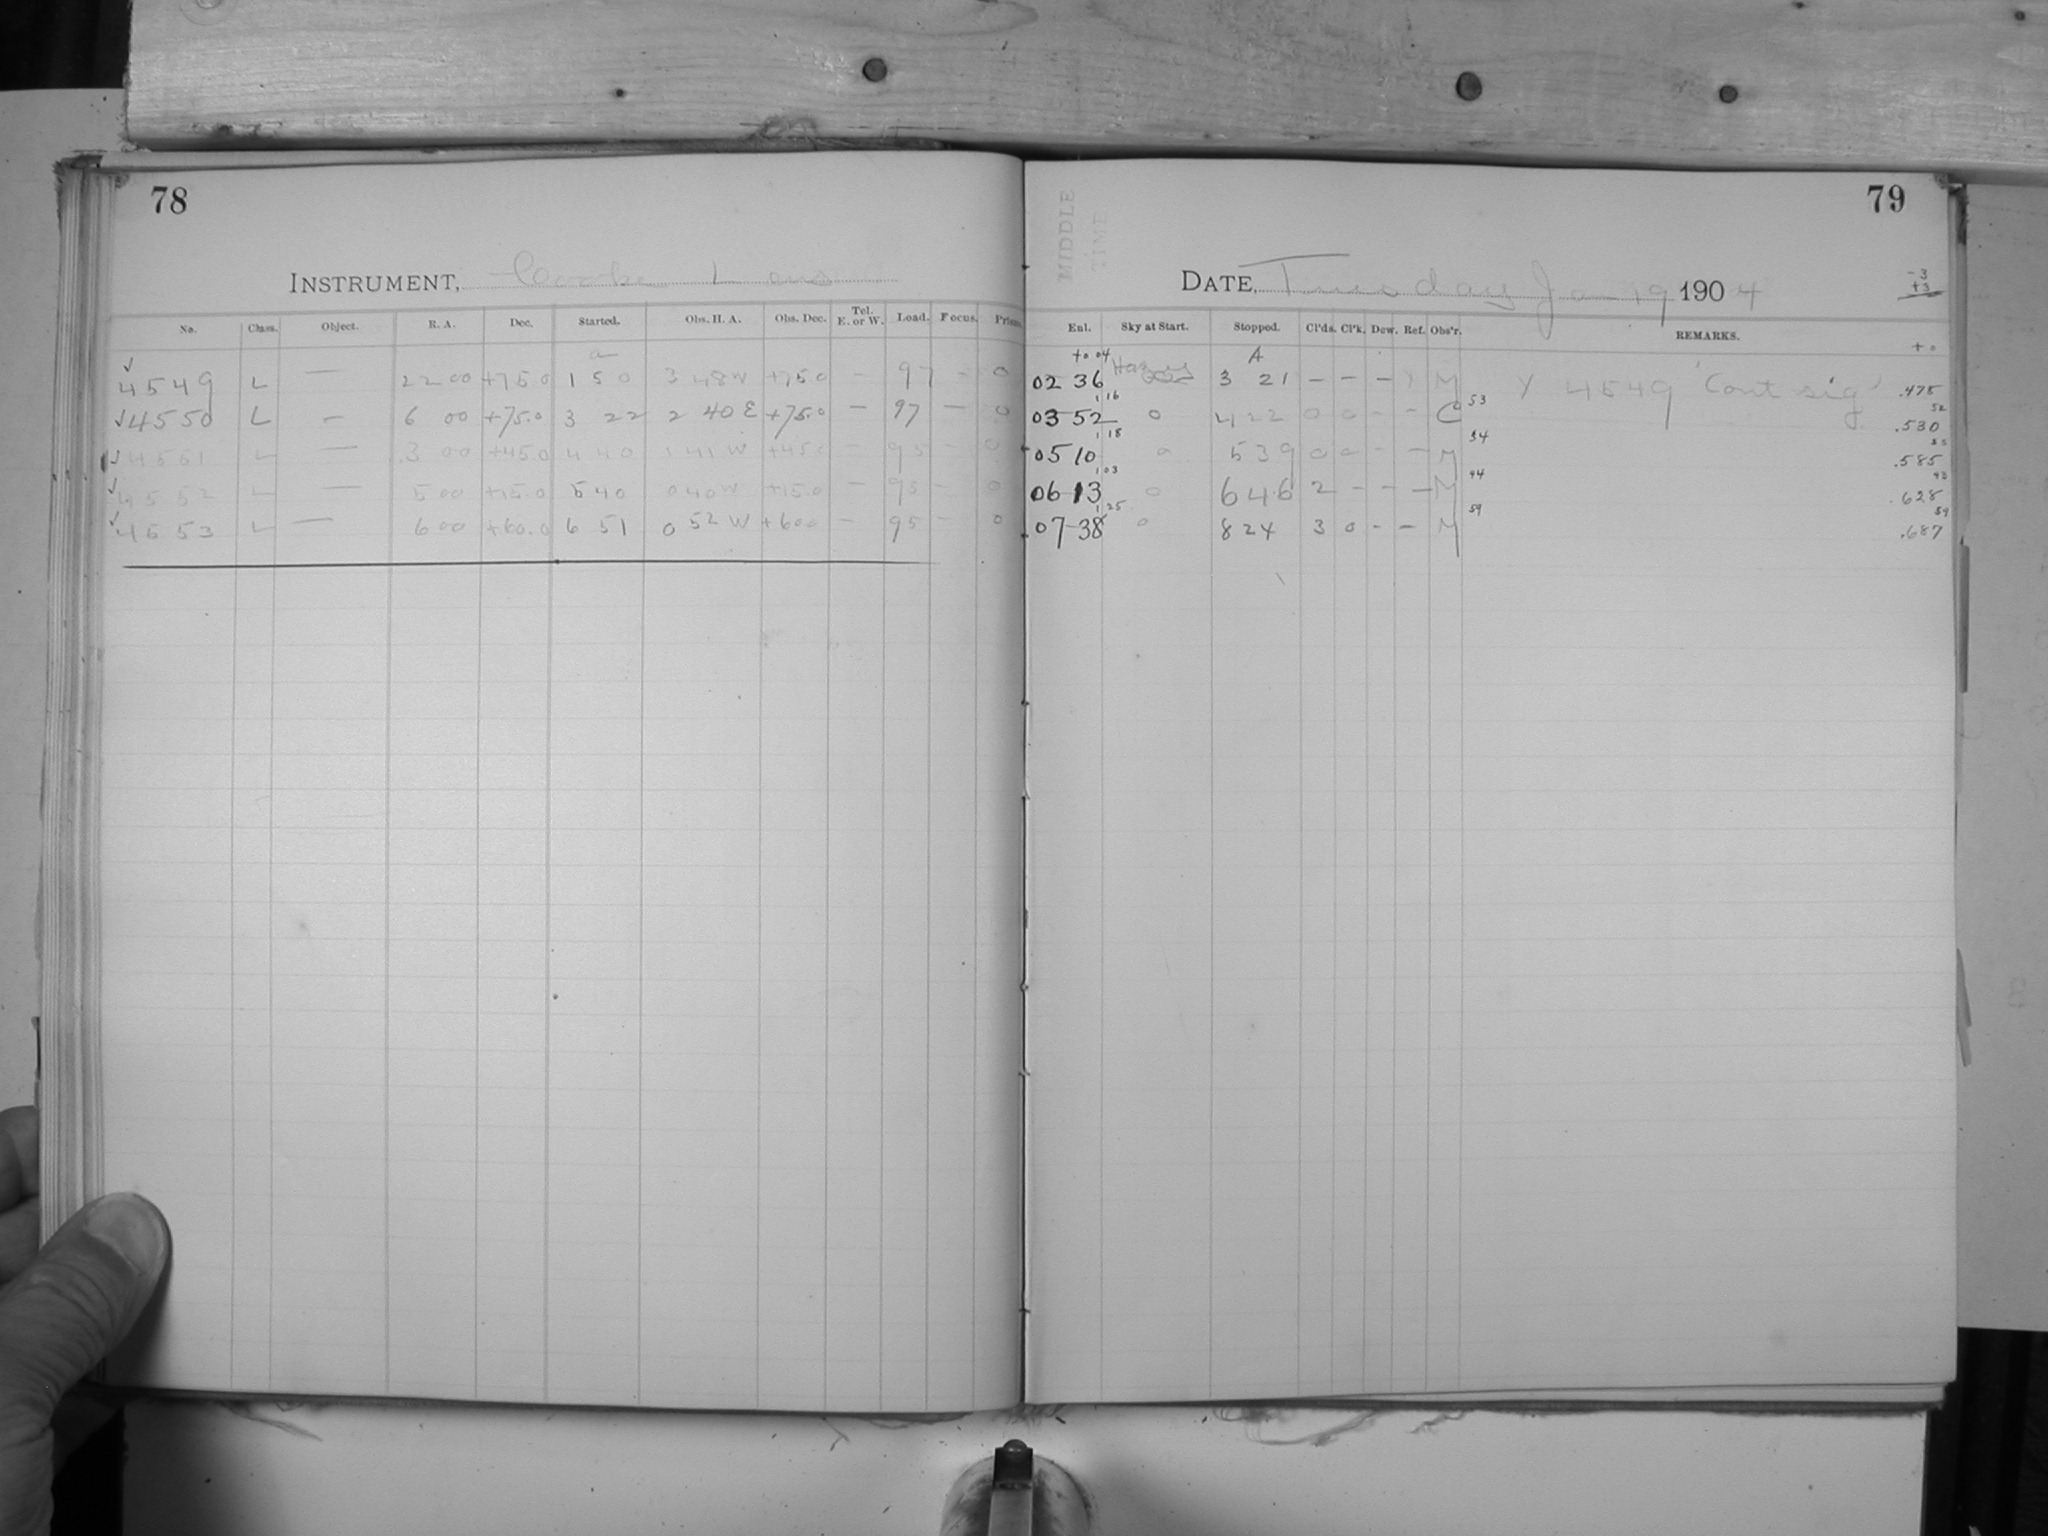 78
INSTRUMENT, Cooke Lens
No. Class. Object. R. A. Dec. Started. Obs. H. A. Obs. Dec. Tel. E. or W. Load. Focus. Prism.
a
✓ 4549 L — 22 00 +75.0 1 50 3 48 W +75.0 — 97 — 0
✓ 4550 L — 6 00 +75.0 3 22 2 40 E +75.0 — 97 — 0
✓ 4551 L — 3 00 +45.0 4 40 1 41 W +45.0 — 95 — 0
✓ 4552 L — 5 00 +15.0 5 40 0 40 W +15.0 — 95 — 0
✓ 4553 L — 6 00 +60.0 6 51 0 52 W +60.0 — 95 — 0
79
MIDDLE
TIME
DATE, Tuesday Jan 19 1904
-3
+3
Enl. Sky at Start. Stopped. Cl'ds. Cl'k. Dew. Ref. Obs'r. REMARKS.
+0 04 A +0
02 36 Hazy 3 21 — — — M Y 4549 "Cont sig" .478
1 16 53 52
03 52 0 4 22 0 0 - - C .530
1 18 54 55
05 10 0 5 39 0 0 - — M .585
1 03 44 43
06 13 0 6 46 2 - - — M .628
1 25 59 59
07 38 0 8 24 3 0 - — M .687